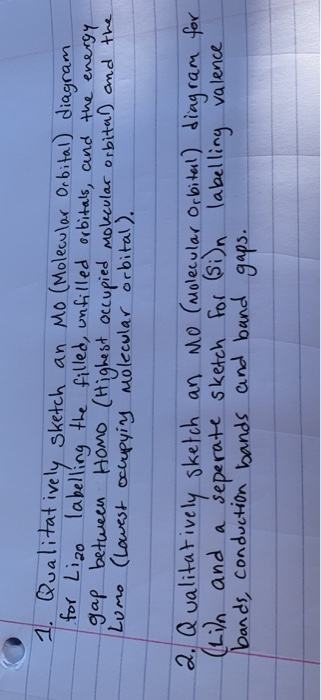 1. Qualitatively sketch an MO (Molecular Orbital) diagram
for Li20 labelling the filled, unfilled orbitals, and the energy
gap between HOMO (Highest occupied Molecular orbital) and the
LUMO (Lowest occupying Molecular orbital).
2. Qualitatively sketch an MO (Molecular Orbital) diagram for
(Li)n and a seperate sketch for (Si)n labelling valence
bands, conduction bands and band gaps.